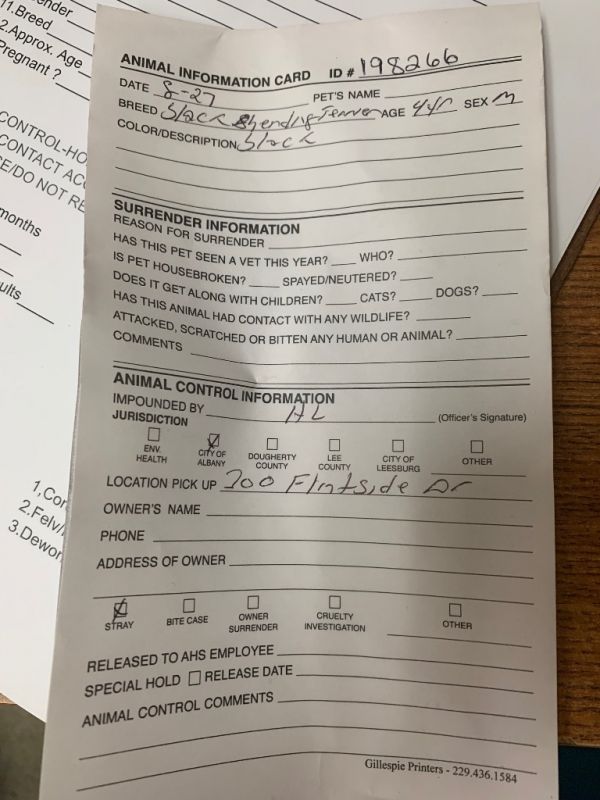 ender
11.Breed
2.Approx. Age
Pregnant ?
CONTROL-HO
CONTACT AC
E/DO NOT RE
months
ults
1,Cor
2.Felv/
3.Dewor
ANIMAL INFORMATION CARD ID # 198266
DATE 8-27 PET'S NAME
BREED black AGE 4yr SEX M
COLOR/DESCRIPTION black
SURRENDER INFORMATION
REASON FOR SURRENDER
HAS THIS PET SEEN A VET THIS YEAR? WHO?
IS PET HOUSEBROKEN? SPAYED/NEUTERED?
DOES IT GET ALONG WITH CHILDREN? CATS? DOGS?
HAS THIS ANIMAL HAD CONTACT WITH ANY WILDLIFE?
ATTACKED, SCRATCHED OR BITTEN ANY HUMAN OR ANIMAL?
COMMENTS
ANIMAL CONTROL INFORMATION
IMPOUNDED BY HL (Officer's Signature)
JURISDICTION
ENV. HEALTH CITY OF ALBANY DOUGHERTY COUNTY LEE COUNTY CITY OF LEESBURG OTHER
LOCATION PICK UP 200 Flintside Dr
OWNER'S NAME
PHONE
ADDRESS OF OWNER
STRAY BITE CASE OWNER SURRENDER CRUELTY INVESTIGATION OTHER
RELEASED TO AHS EMPLOYEE
SPECIAL HOLD RELEASE DATE
ANIMAL CONTROL COMMENTS
Gillespie Printers - 229.436.1584